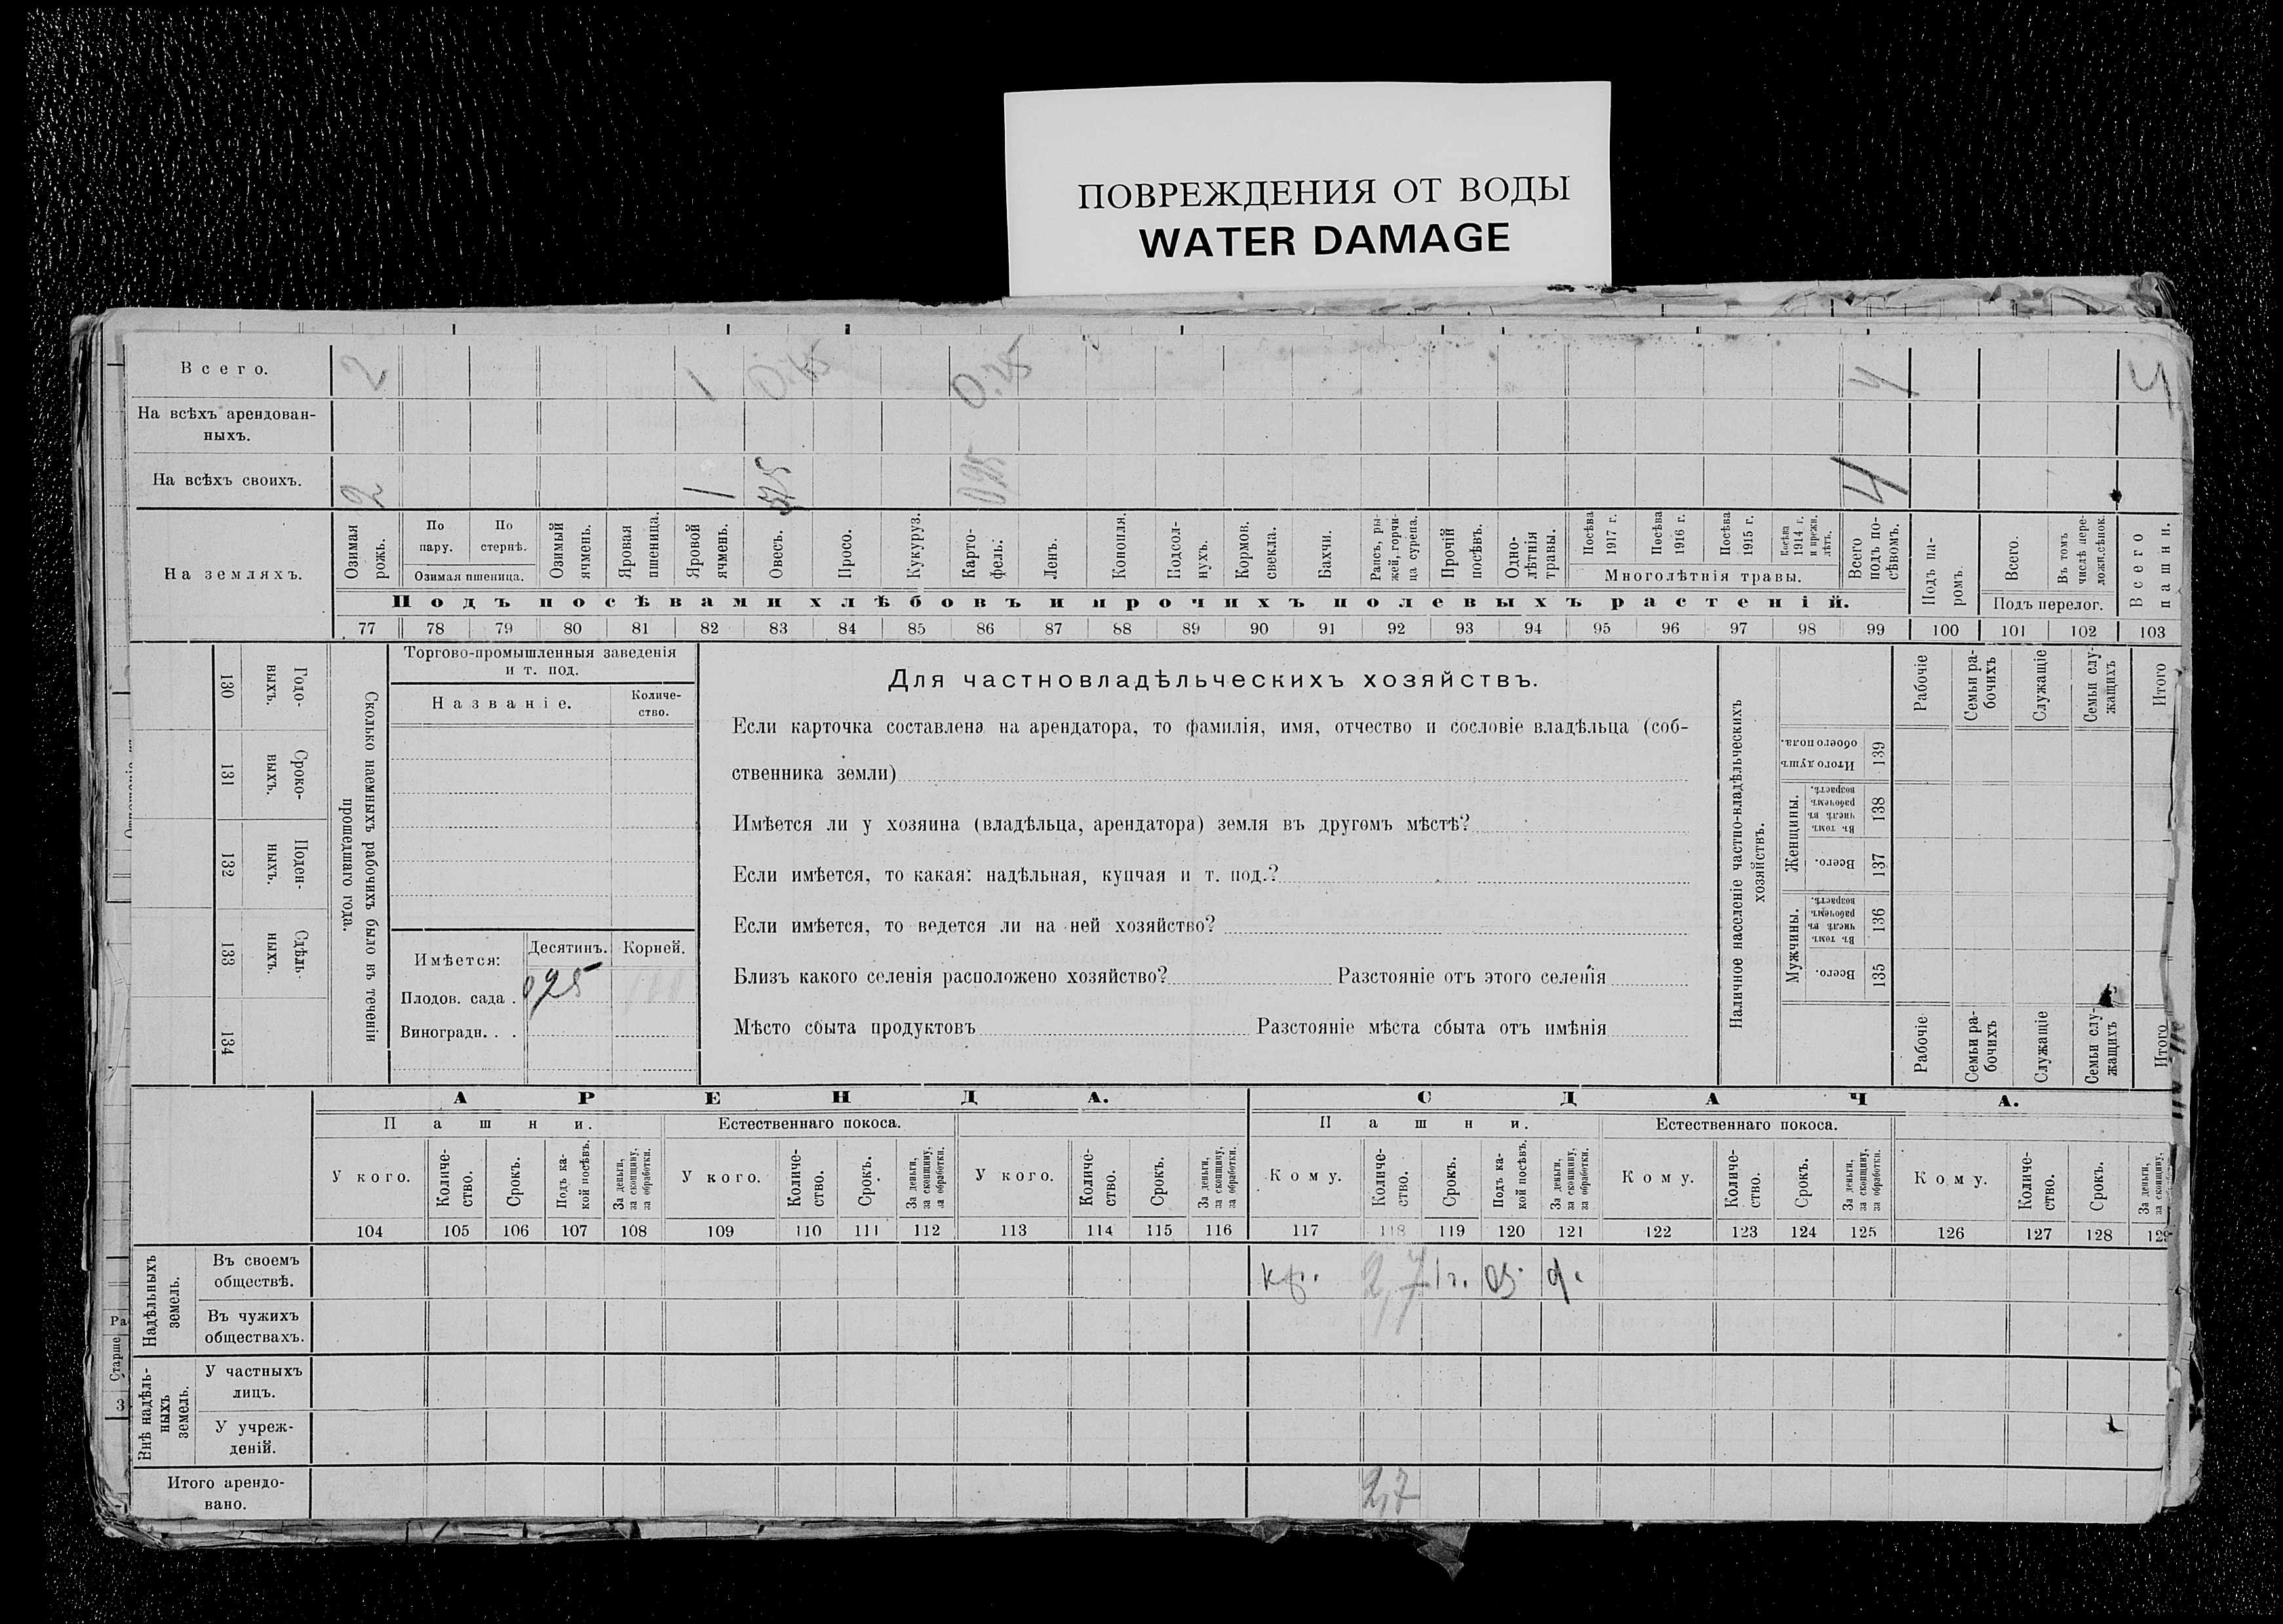 ПОВРЕЖДЕНИЯ ОТ ВОДЫ
WATER DAMAGE
Всего. 2 1 4
На всѣхъ арендован-
ныхъ.
На всѣхъ своихъ. 2 1 4
На земляхъ.
Озимая рожь.
По пару.
По стернѣ.
Озимая пшеница.
Озимый ячмень.
Яровая пшеница.
Яровой ячмень.
Овесъ.
Просо.
Кукуруз.
Карто-
фель.
Ленъ.
Конопля.
Подсол-
нухъ.
Кормов. свекла.
Бахчи.
Рапсъ, ры-
жей, горчи-
ца сурепа.
Прочій посѣвъ.
Одно-
лѣтнія травы.
Посѣва 1917 г.
Посѣва 1916 г.
Посѣва 1915 г.
Посѣва 1914 г. и прежн. лѣтъ.
Многолѣтнія травы.
Всего подъ по-
сѣвомъ.
Подъ па-
ромъ.
Всего.
Въ томъ числѣ пере-
ложн.сѣнок.
Подъ перелог.
Всего пашни.
Подъ посѣвами хлѣбовъ и прочихъ полевыхъ растеній.
77 78 79 80 81 82 83 84 85 86 87 88 89 90 91 92 93 94 95 96 97 98 99 100 101 102 103
130 Годо-
выхъ.
131 Сроко-
ныхъ.
132 Поден-
ныхъ.
133 Сдѣль-
ныхъ.
134
Сколько наемныхъ рабочихъ было въ теченіи
прошедшаго года.
Торгово-промышленныя заведенія
и т. под.
Названіе.
Количе-
ство.
Имѣется: Десятинъ. Корней.
Плодов. сада . 0,25
Виноградн. . .
Для частновладѣльческихъ хозяйствъ.
Если карточка составлена на арендатора, то фамилія, имя, отчество и сословіе владѣльца (соб-
ственника земли)
Имѣется ли у хозяина (владѣльца, арендатора) земля въ другомъ мѣстѣ?
Если имѣется, то какая: надѣльная, купчая и т. под.?
Если имѣется, то ведется ли на ней хозяйство?
Близъ какого селенія расположено хозяйство? Разстояніе отъ этого селенія
Мѣсто сбыта продуктовъ Разстояніе мѣста сбыта отъ имѣнія
Наличное населеніе частно-владѣльческихъ
хозяйствъ.
Итого душъ обоего пола. 139
Женщины.
Въ томъ числѣ въ рабочемъ возрастѣ. 138
Всего. 137
Мужчины.
Въ томъ числѣ въ рабочемъ возрастѣ. 136
Всего. 135
Рабочіе
Семьи ра-
бочихъ
Служащіе
Семьи слу-
жащихъ
Итого
Рабочіе
Семьи ра-
бочихъ
Служащіе
Семьи слу-
жащихъ
Итого
АРЕНДА. СДАЧА.
Пашни. Естественнаго покоса. Пашни. Естественнаго покоса.
У кого.
Количе-
ство.
Срокъ.
Подъ ка-
кой посѣвъ.
За деньги, за скопщину, за обработки.
У кого.
Количе-
ство.
Срокъ.
За деньги, за скопщину, за обработки.
У кого.
Количе-
ство.
Срокъ.
За деньги, за скопщину, за обработки.
Кому.
Количе-
ство.
Срокъ.
Подъ ка-
кой посѣвъ.
За деньги, за скопщину, за обработки.
Кому.
Количе-
ство.
Срокъ.
За деньги, за скопщину, за обработки.
Кому.
Количе-
ство.
Срокъ.
За деньги, за скопщину,
104 105 106 107 108 109 110 111 112 113 114 115 116 117 118 119 120 121 122 123 124 125 126 127 128 129
Надѣльныхъ
земель.
Въ своемъ
обществѣ. кр. 2,7 1г. оз. д.
Въ чужихъ
обществахъ.
Внѣ надѣль-
ныхъ
земель.
У частныхъ
лицъ.
У учреж-
деній.
Итого арендо-
вано. 2,7
Ра
Старше
3